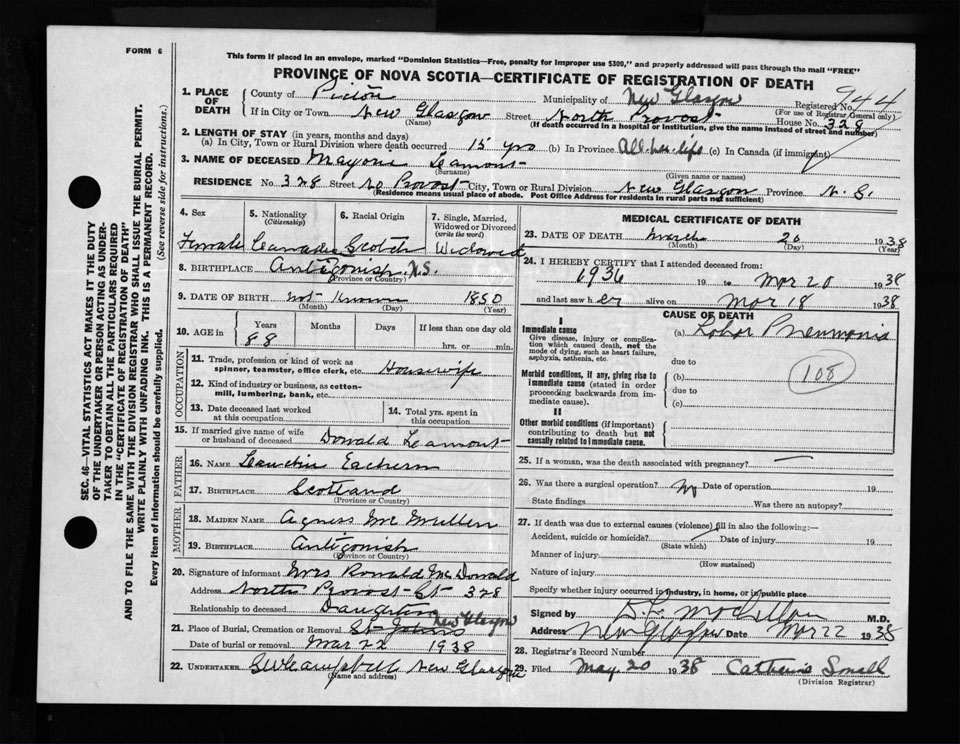 FORM 6
This form if placed in an envelope, marked "Dominion Statistics—Free, penalty for improper use $300," and properly addressed will pass through the mail "FREE"
PROVINCE OF NOVA SCOTIA—CERTIFICATE OF REGISTRATION OF DEATH
SEC. 46—VITAL STATISTICS ACT MAKES IT THE DUTY
OF THE UNDERTAKER OR PERSON ACTING AS UNDER-
TAKER TO OBTAIN ALL THE PARTICULARS REQUIRED
IN THE "CERTIFICATE OF REGISTRATION OF DEATH"
AND TO FILE THE SAME WITH THE DIVISION REGISTRAR WHO SHALL ISSUE THE BURIAL PERMIT.
WRITE PLAINLY WITH UNFADING INK. THIS IS A PERMANENT RECORD.
Every item of information should be carefully supplied. (See reverse side for instructions.)
1. PLACE OF DEATH County of Pictou Municipality of New Glasgow Registered No. 944
(For use of Registrar General only)
If in City or Town New Glasgow Street North Provost House No. 328
(Name) (If death occurred in a hospital or institution, give the name instead of street and number)
2. LENGTH OF STAY (in years, months and days)
(a) In City, Town or Rural Division where death occurred 15 yrs (b) In Province All her life (c) In Canada (if immigrant)
3. NAME OF DECEASED Lamont
(Surname) (Given name or names)
RESIDENCE No. 328 Street No Provost City, Town or Rural Division New Glasgow Province N.S.
(Residence means usual place of abode. Post Office Address for residents in rural parts not sufficient)
4. Sex 5. Nationality (Citizenship) 6. Racial Origin 7. Single, Married, Widowed or Divorced (write the word)
Female Canadian Scotch Widowed
8. BIRTHPLACE Antigonish, N.S.
(Province or Country)
9. DATE OF BIRTH not Known 1850
(Month) (Day) (Year)
10. AGE in Years Months Days If less than one day old
88 hrs. or min.
OCCUPATION
11. Trade, profession or kind of work as spinner, teamster, office clerk, etc. Housewife
12. Kind of industry or business, as cotton-mill, lumbering, bank, etc.
13. Date deceased last worked at this occupation 14. Total yrs. spent in this occupation
15. If married give name of wife or husband of deceased Donald Lamont
FATHER
16. NAME Eachern
17. BIRTHPLACE Scotland
(Province or Country)
MOTHER
18. MAIDEN NAME Agness McMullen
19. BIRTHPLACE Antigonish
(Province or Country)
20. Signature of informant Mrs Ronald McDonald
Address North Provost St 328
Relationship to deceased Daughter
21. Place of Burial, Cremation or Removal St Johns New Glasgow
Date of burial or removal Mar 22 1938
22. UNDERTAKER Campbell New Glasgow
(Name and address)
MEDICAL CERTIFICATE OF DEATH
23. DATE OF DEATH March 20 1938
(Month) (Day) (Year)
24. I HEREBY CERTIFY that I attended deceased from:
1936 19 to Mar 20 1938
and last saw her alive on Mar 18 1938
CAUSE OF DEATH
I
Immediate cause (a) Lobar Pneumonia
Give disease, injury or complication which caused death, not the mode of dying, such as heart failure, asphyxia, asthenia, etc.
due to
Morbid conditions, if any, giving rise to immediate cause (stated in order proceeding backwards from immediate cause). (b)
108
due to
(c)
II
Other morbid conditions (if important) contributing to death but not causally related to immediate cause.
25. If a woman, was the death associated with pregnancy? —
26. Was there a surgical operation? No Date of operation 19
State findings Was there an autopsy?
27. If death was due to external causes (violence) fill in also the following:—
Accident, suicide or homicide? Date of injury 19
(State which)
Manner of injury
(How sustained)
Nature of injury
Specify whether injury occurred in industry, in home, or in public place
Signed by M.D.
Address New Glasgow Date Mar 22 1938
28. Registrar's Record Number
29. Filed May 20 1938 Catherine Small
(Division Registrar)